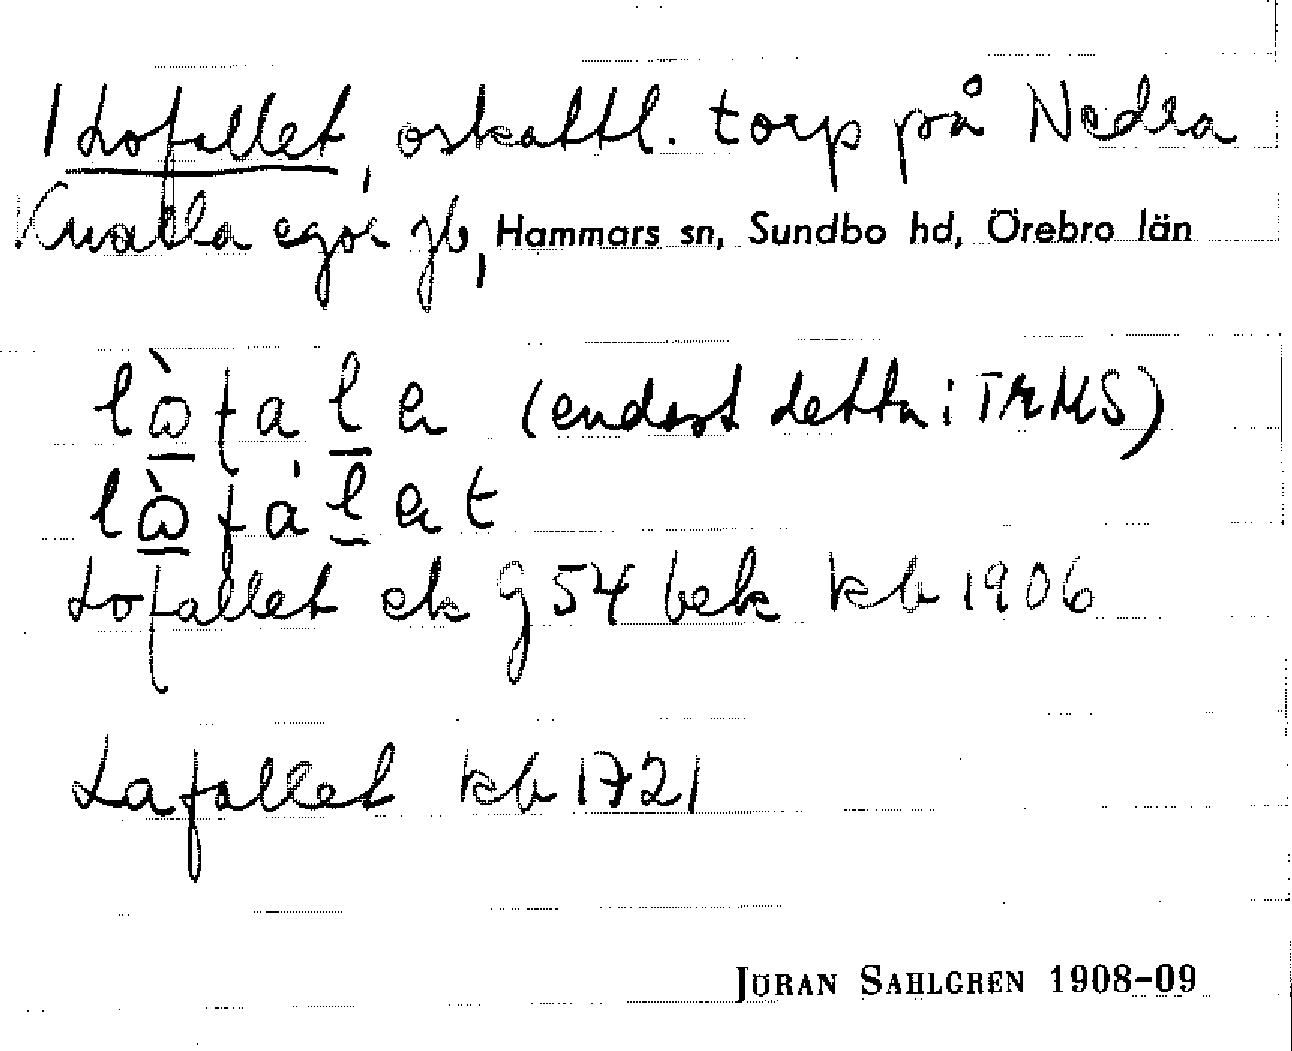 1 Lofallet, oskattl. torp på Nedra
Knalla egor jb, Hammars sn, Sundbo hd, Örebro län
lὼfaḻa (endast detta i TRMS)
lὼfáḻat
Lofallet ek g 54 bek kb 1906
Lafallet kb 1721
JÖRAN SAHLGREN 1908-09